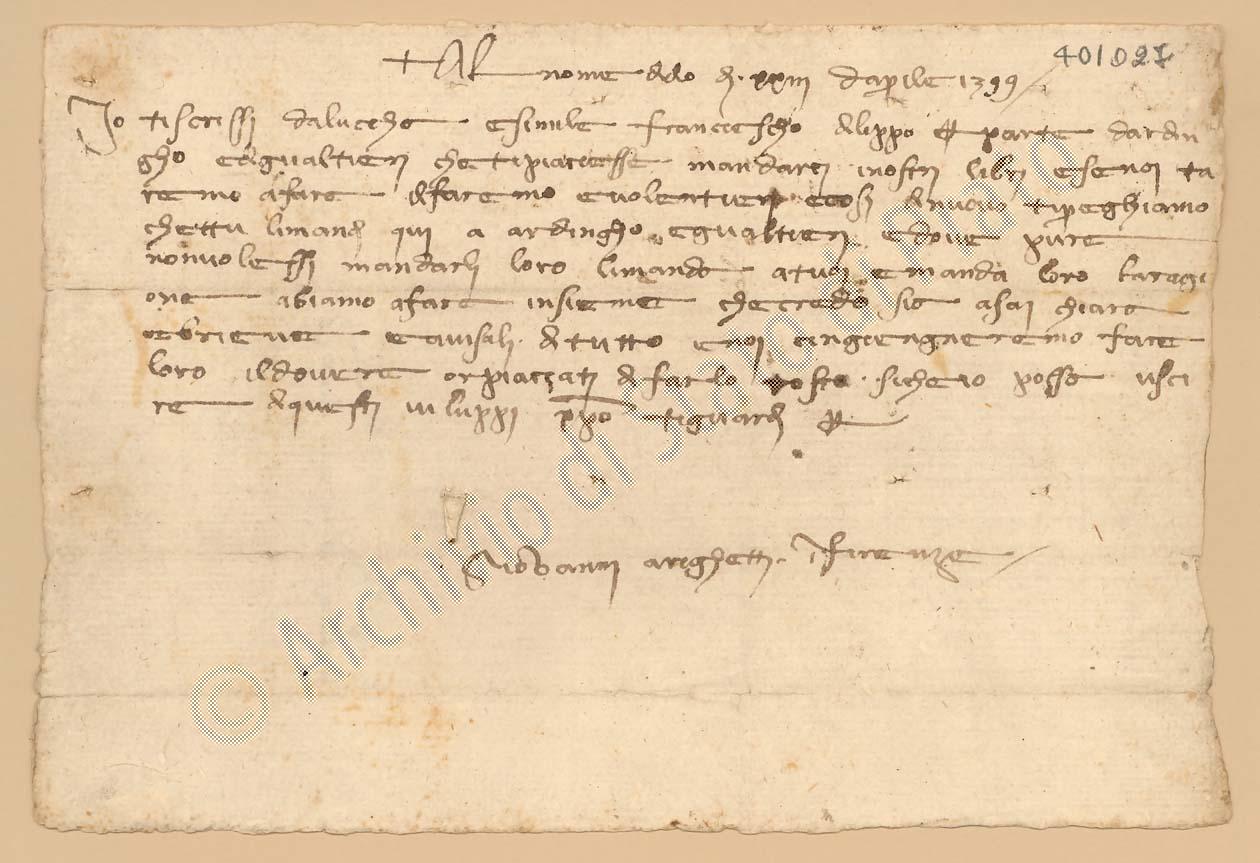 401027
+ Al nome ddo d. xxiii daprile 1399
Io tiscrissi daluccho esimile francescho dilippo e parte dardin
gho edigualtieri chetipiaciesse mandarci inostri libri esenoi ta
remo afare difaremo evolentieri ecosi dinuovo tipreghiamo
chettu limandi qui a ardingho egualtieri edove pure
nonvolessi mandarli loro limanda atuoi emanda loro laragi
one abiamo afare insieme checredo sia asai chiara
ebrieve eavisali ditutto enoi cingiengneremo fare
loro ildovere orpiacciati difarlo tosto sicheio possa usci
re diquesti viluppi tiguardi
Giovanni arighetti ifirenze
© Archivio di Stato di Prato